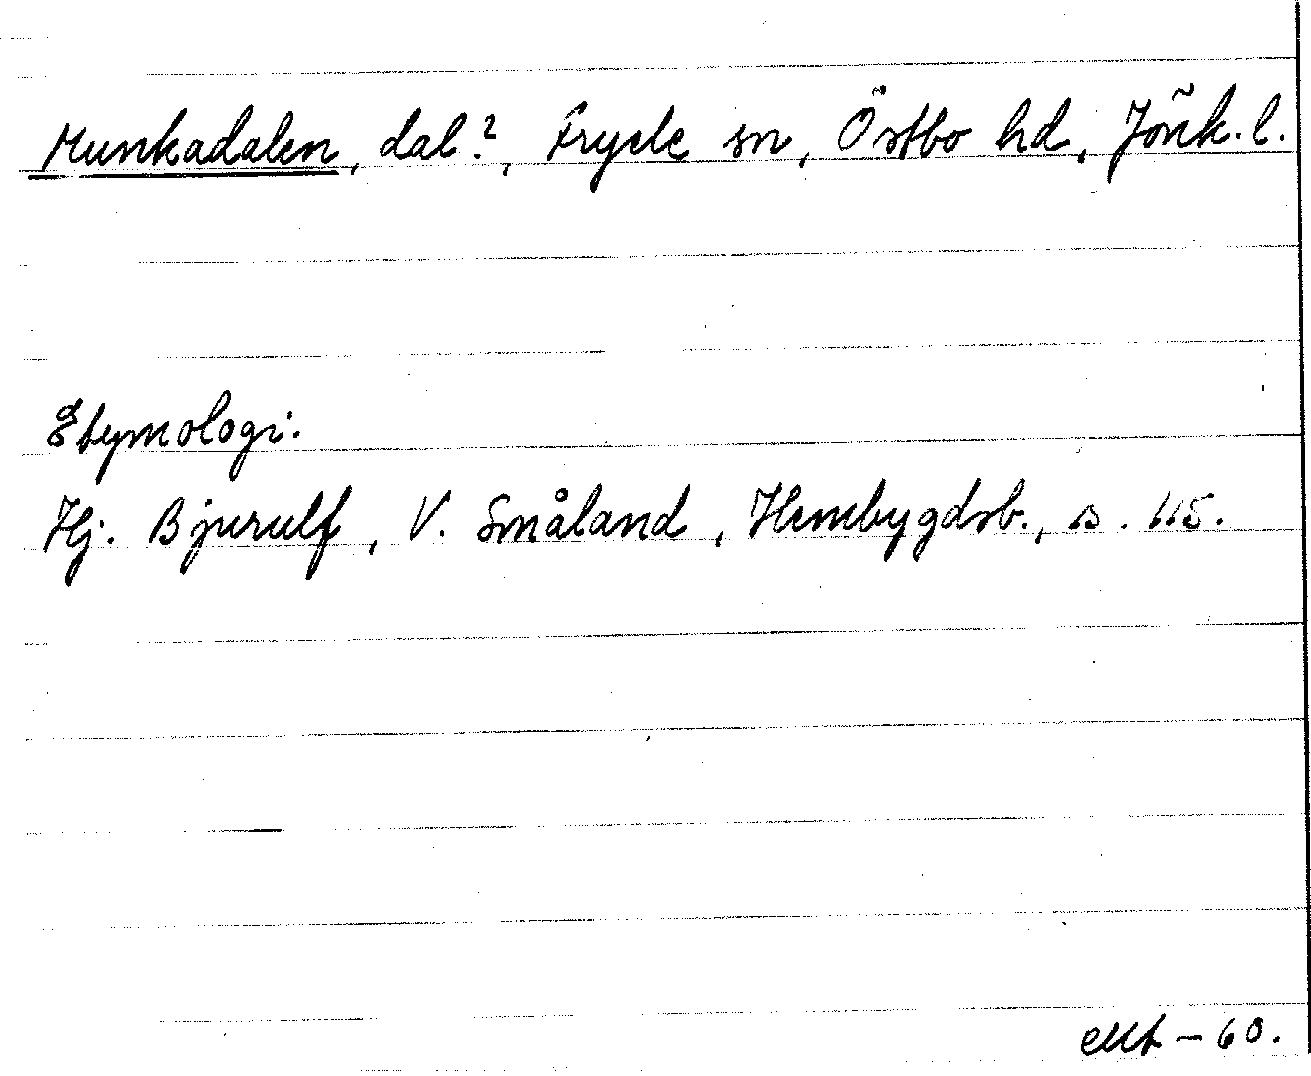 Munkadalen, dal?, Fryele sn, Östbo hd, Jönk. l.
Etymologi.
Hj. Bjurulf, V. Småland, Hembygdsb., s. 115.
-60.